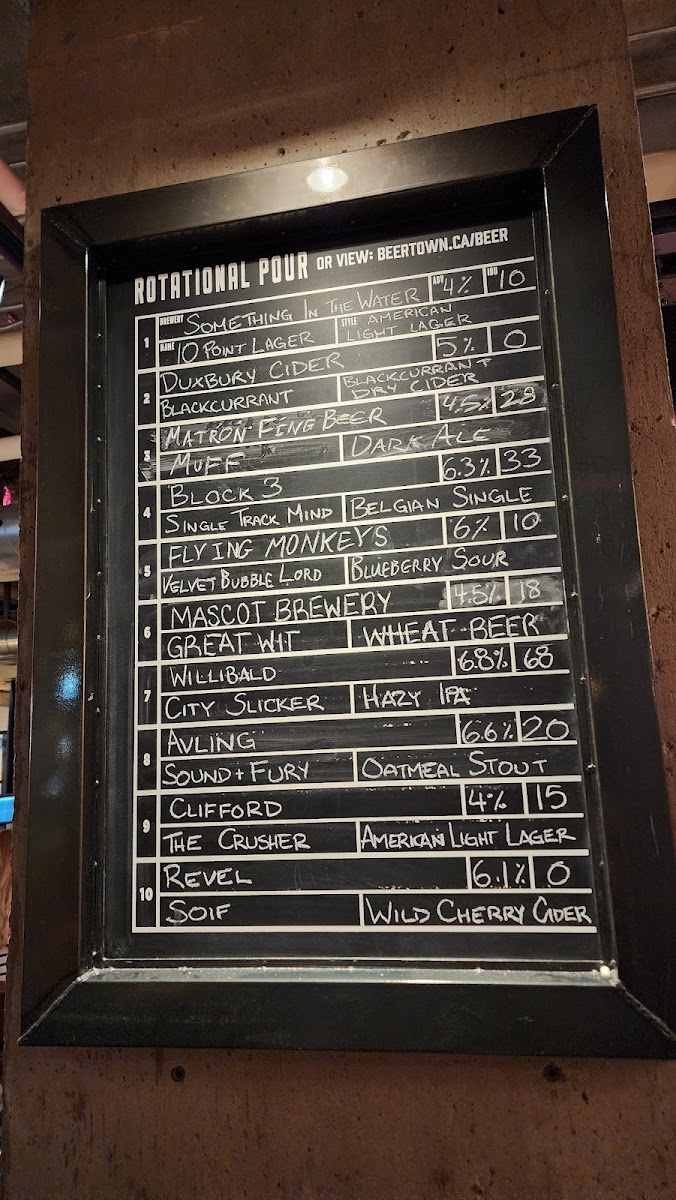 ROTATIONAL POUR OR VIEW: BEERTOWN.CA/BEER
1 BREWERY SOMETHING IN THE WATER ABV 4% IBU 10
NAME 10 POINT LAGER STYLE AMERICAN LIGHT LAGER
2 DUXBURY CIDER 5% 0
BLACKCURRANT BLACKCURRANT DRY CIDER
3 MATRON FINE BEER 4.5% 28
MUFF DARK ALE
4 BLOCK 3 6.3% 33
SINGLE TRACK MIND BELGIAN SINGLE
5 FLYING MONKEYS 6% 10
VELVET BUBBLE LORD BLUEBERRY SOUR
6 MASCOT BREWERY 4.5% 18
GREAT WIT WHEAT BEER
7 WILLIBALD 6.8% 68
CITY SLICKER HAZY IPA
8 AVLING 6.6% 20
SOUND + FURY OATMEAL STOUT
9 CLIFFORD 4% 15
THE CRUSHER AMERICAN LIGHT LAGER
10 REVEL 6.1% 0
SOIF WILD CHERRY CIDER